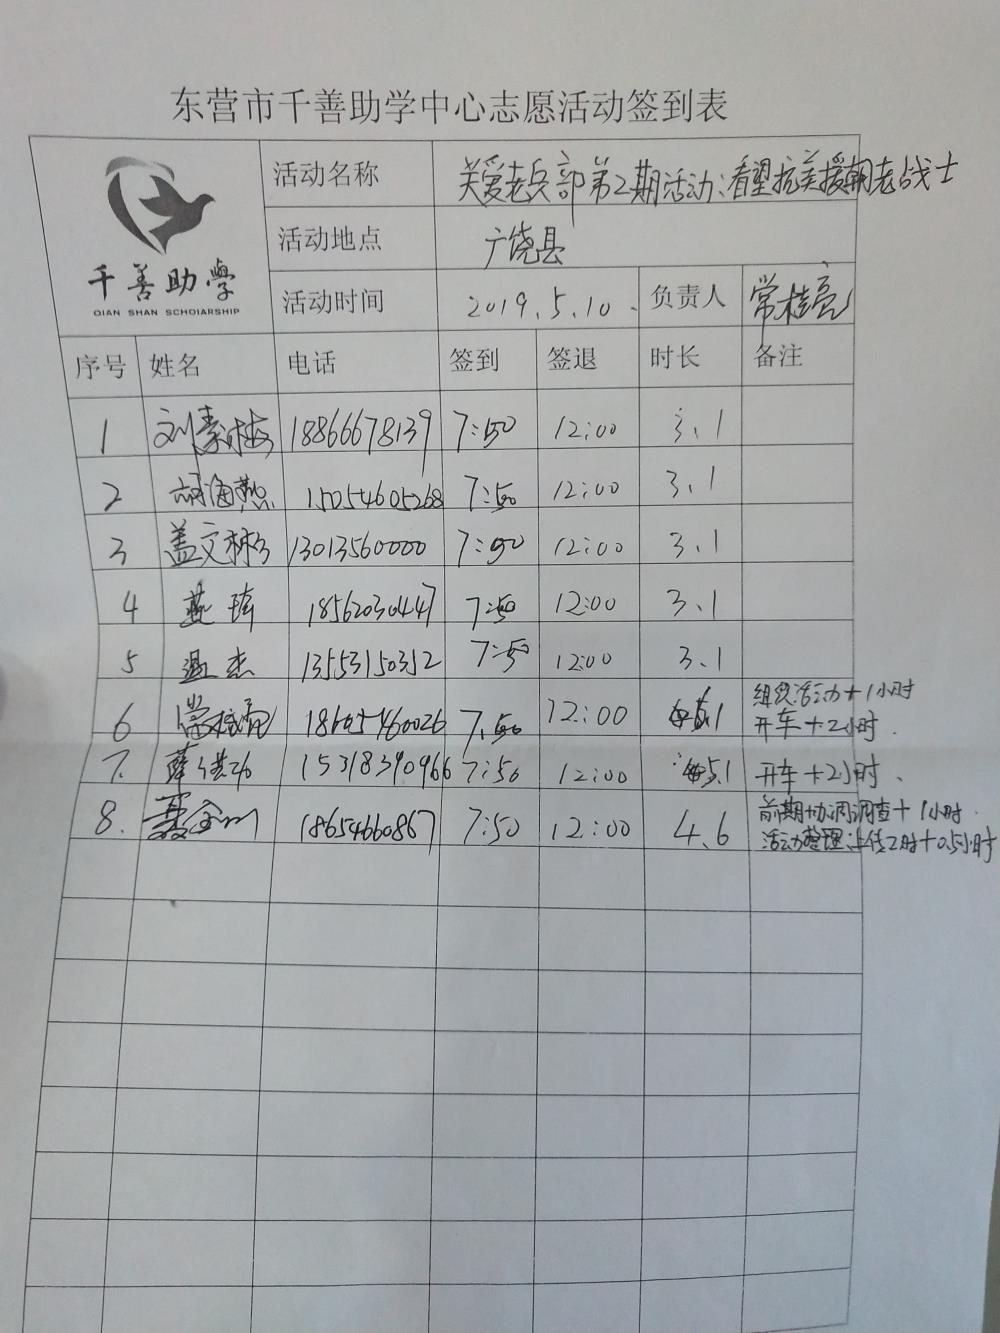 东营市千善助学中心志愿活动签到表
千善助學
QIAN SHAN SCHOIARSHIP
活动名称 关爱老兵部第2期活动:看望抗美援朝老战士
活动地点 广饶县
活动时间 2019.5.10. 负责人 常桂亮
序号 姓名 电话 签到 签退 时长 备注
1 刘素梅 18866678139 7:50 12:00 3.1
2 胡海燕 15054605268 7:50 12:00 3.1
3 盖文彬 13013560000 7:50 12:00 3.1
4 燕 18562030447 7:50 12:00 3.1
5 温杰 13553150352 7:50 12:00 3.1
6 常桂亮 18605460026 7:50 12:00 .1 组织活动+1小时
开车+2小时.
7. 薛 15318390966 7:50 12:00 5.1 开车+2小时.
8. 18654660867 7:50 12:00 4.6 前期协调调查+1小时.
活动整理上传2时+0.5小时